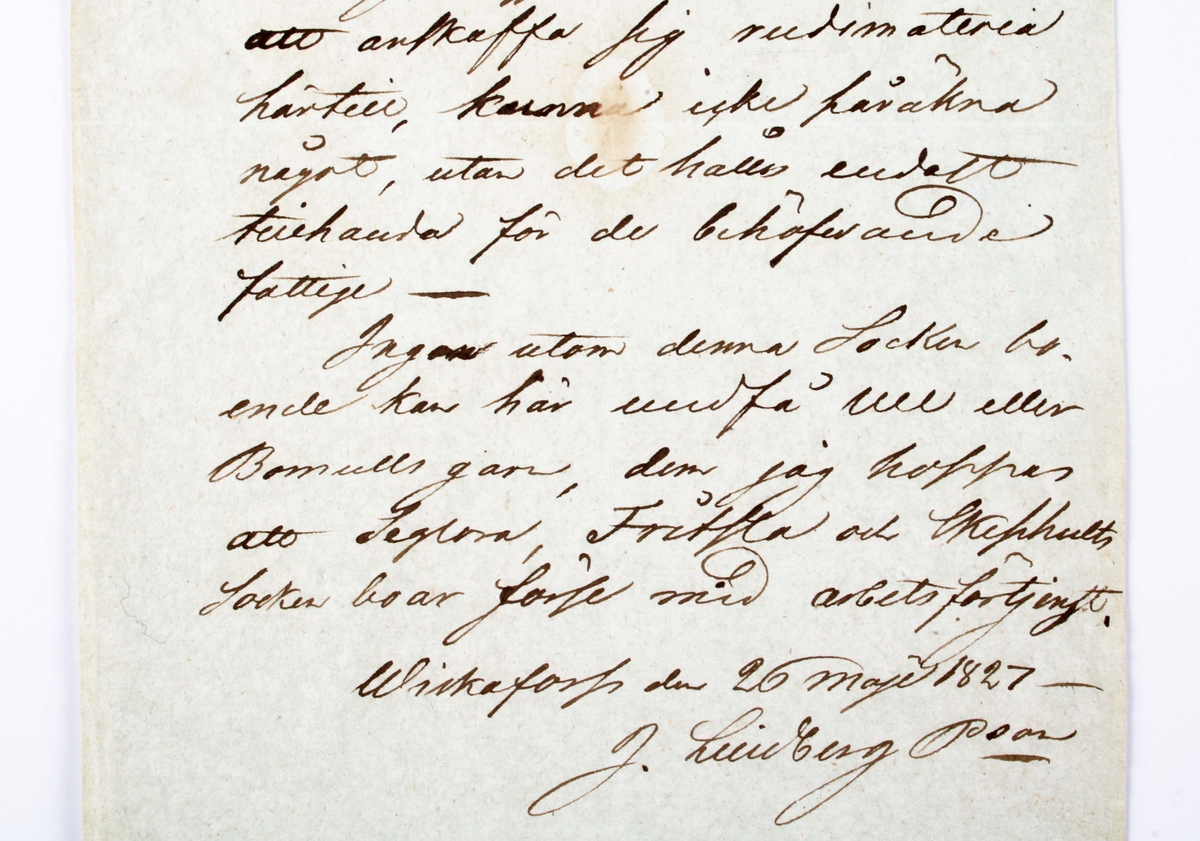 att anskaffa sig rudimateria
härtill, kunna icke påräkna
något, utan det hålles endast
tillhanda för de behöfvande
fattige —
Ingen utom denna Socken bo-
ende kan här undfå Ull eller
Bomulls garn, dem jag hoppas
att Seglora, Fritsla och Skephults
Socken boar förse med arbetsförtjenst.
Wiskaforss den 26 Maji 1827 —
J. Lundberg Pson